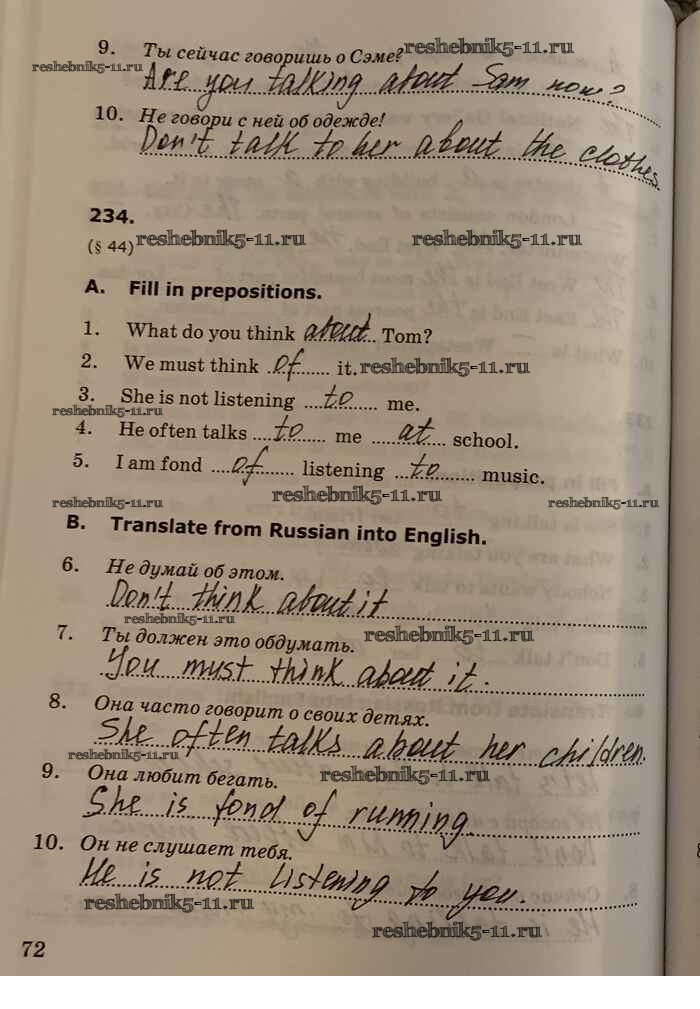 9. Ты сейчас говоришь о Сэме? reshebnik5-11.ru
reshebnik5-11.ru
Are you talking about Sam now?
10. Не говори с ней об одежде!
Don't talk to her about the clothes
234.
(§ 44) reshebnik5-11.ru reshebnik5-11.ru
A. Fill in prepositions.
1. What do you think about Tom?
2. We must think of it. reshebnik5-11.ru
3. She is not listening to me.
reshebnik5-11.ru
4. He often talks to me at school.
5. I am fond of listening to music.
reshebnik5-11.ru reshebnik5-11.ru reshebnik5-11.ru
B. Translate from Russian into English.
6. Не думай об этом.
Don't think about it
reshebnik5-11.ru
7. Ты должен это обдумать. reshebnik5-11.ru
You must think about it.
8. Она часто говорит о своих детях.
She often talks about her children.
reshebnik5-11.ru
9. Она любит бегать. reshebnik5-11.ru
She is fond of running.
10. Он не слушает тебя.
He is not listening to you.
reshebnik5-11.ru
reshebnik5-11.ru
72